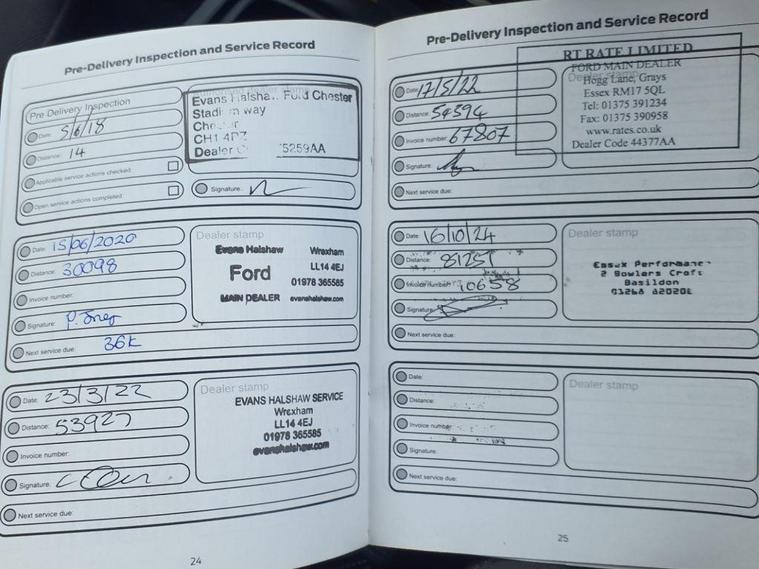 Pre-Delivery Inspection and Service Record
Pre Delivery Inspection
Date: 5/6/18
Distance: 14
Applicable service actions checked
Open service actions completed
Evans Halshaw Ford Chester
way
CH1
Dealer 5259AA
Signature:
Date: 15/06/2020
Distance: 30098
Invoice number:
Signature:
Next service due: 36K
Dealer stamp
Evans Halshaw Wrexham
Ford LL14 4EJ
01978 365585
MAIN DEALER evanshalshaw.com
Date: 23/3/22
Distance: 53927
Invoice number:
Signature:
Next service due:
Dealer stamp
EVANS HALSHAW SERVICE
Wrexham
LL14 4EJ
01978 365585
evanshalshaw.com
24
Pre-Delivery Inspection and Service Record
Date: 17/5/22
Distance: 54394
Invoice number: 67807
Signature:
Next service due:
Dealer stamp
RT RATE LIMITED
FORD MAIN DEALER
Hogg Lane, Grays
Essex RM17 5QL
Tel: 01375 391234
Fax: 01375 390958
www.rates.co.uk
Dealer Code 44377AA
Date: 16/10/24
Distance: 81251
Invoice number: 10658
Signature:
Next service due:
Dealer stamp
Essex
2 Bowlers Croft
Basildon
01268
Date:
Distance:
Invoice number:
Signature:
Next service due:
Dealer stamp
25